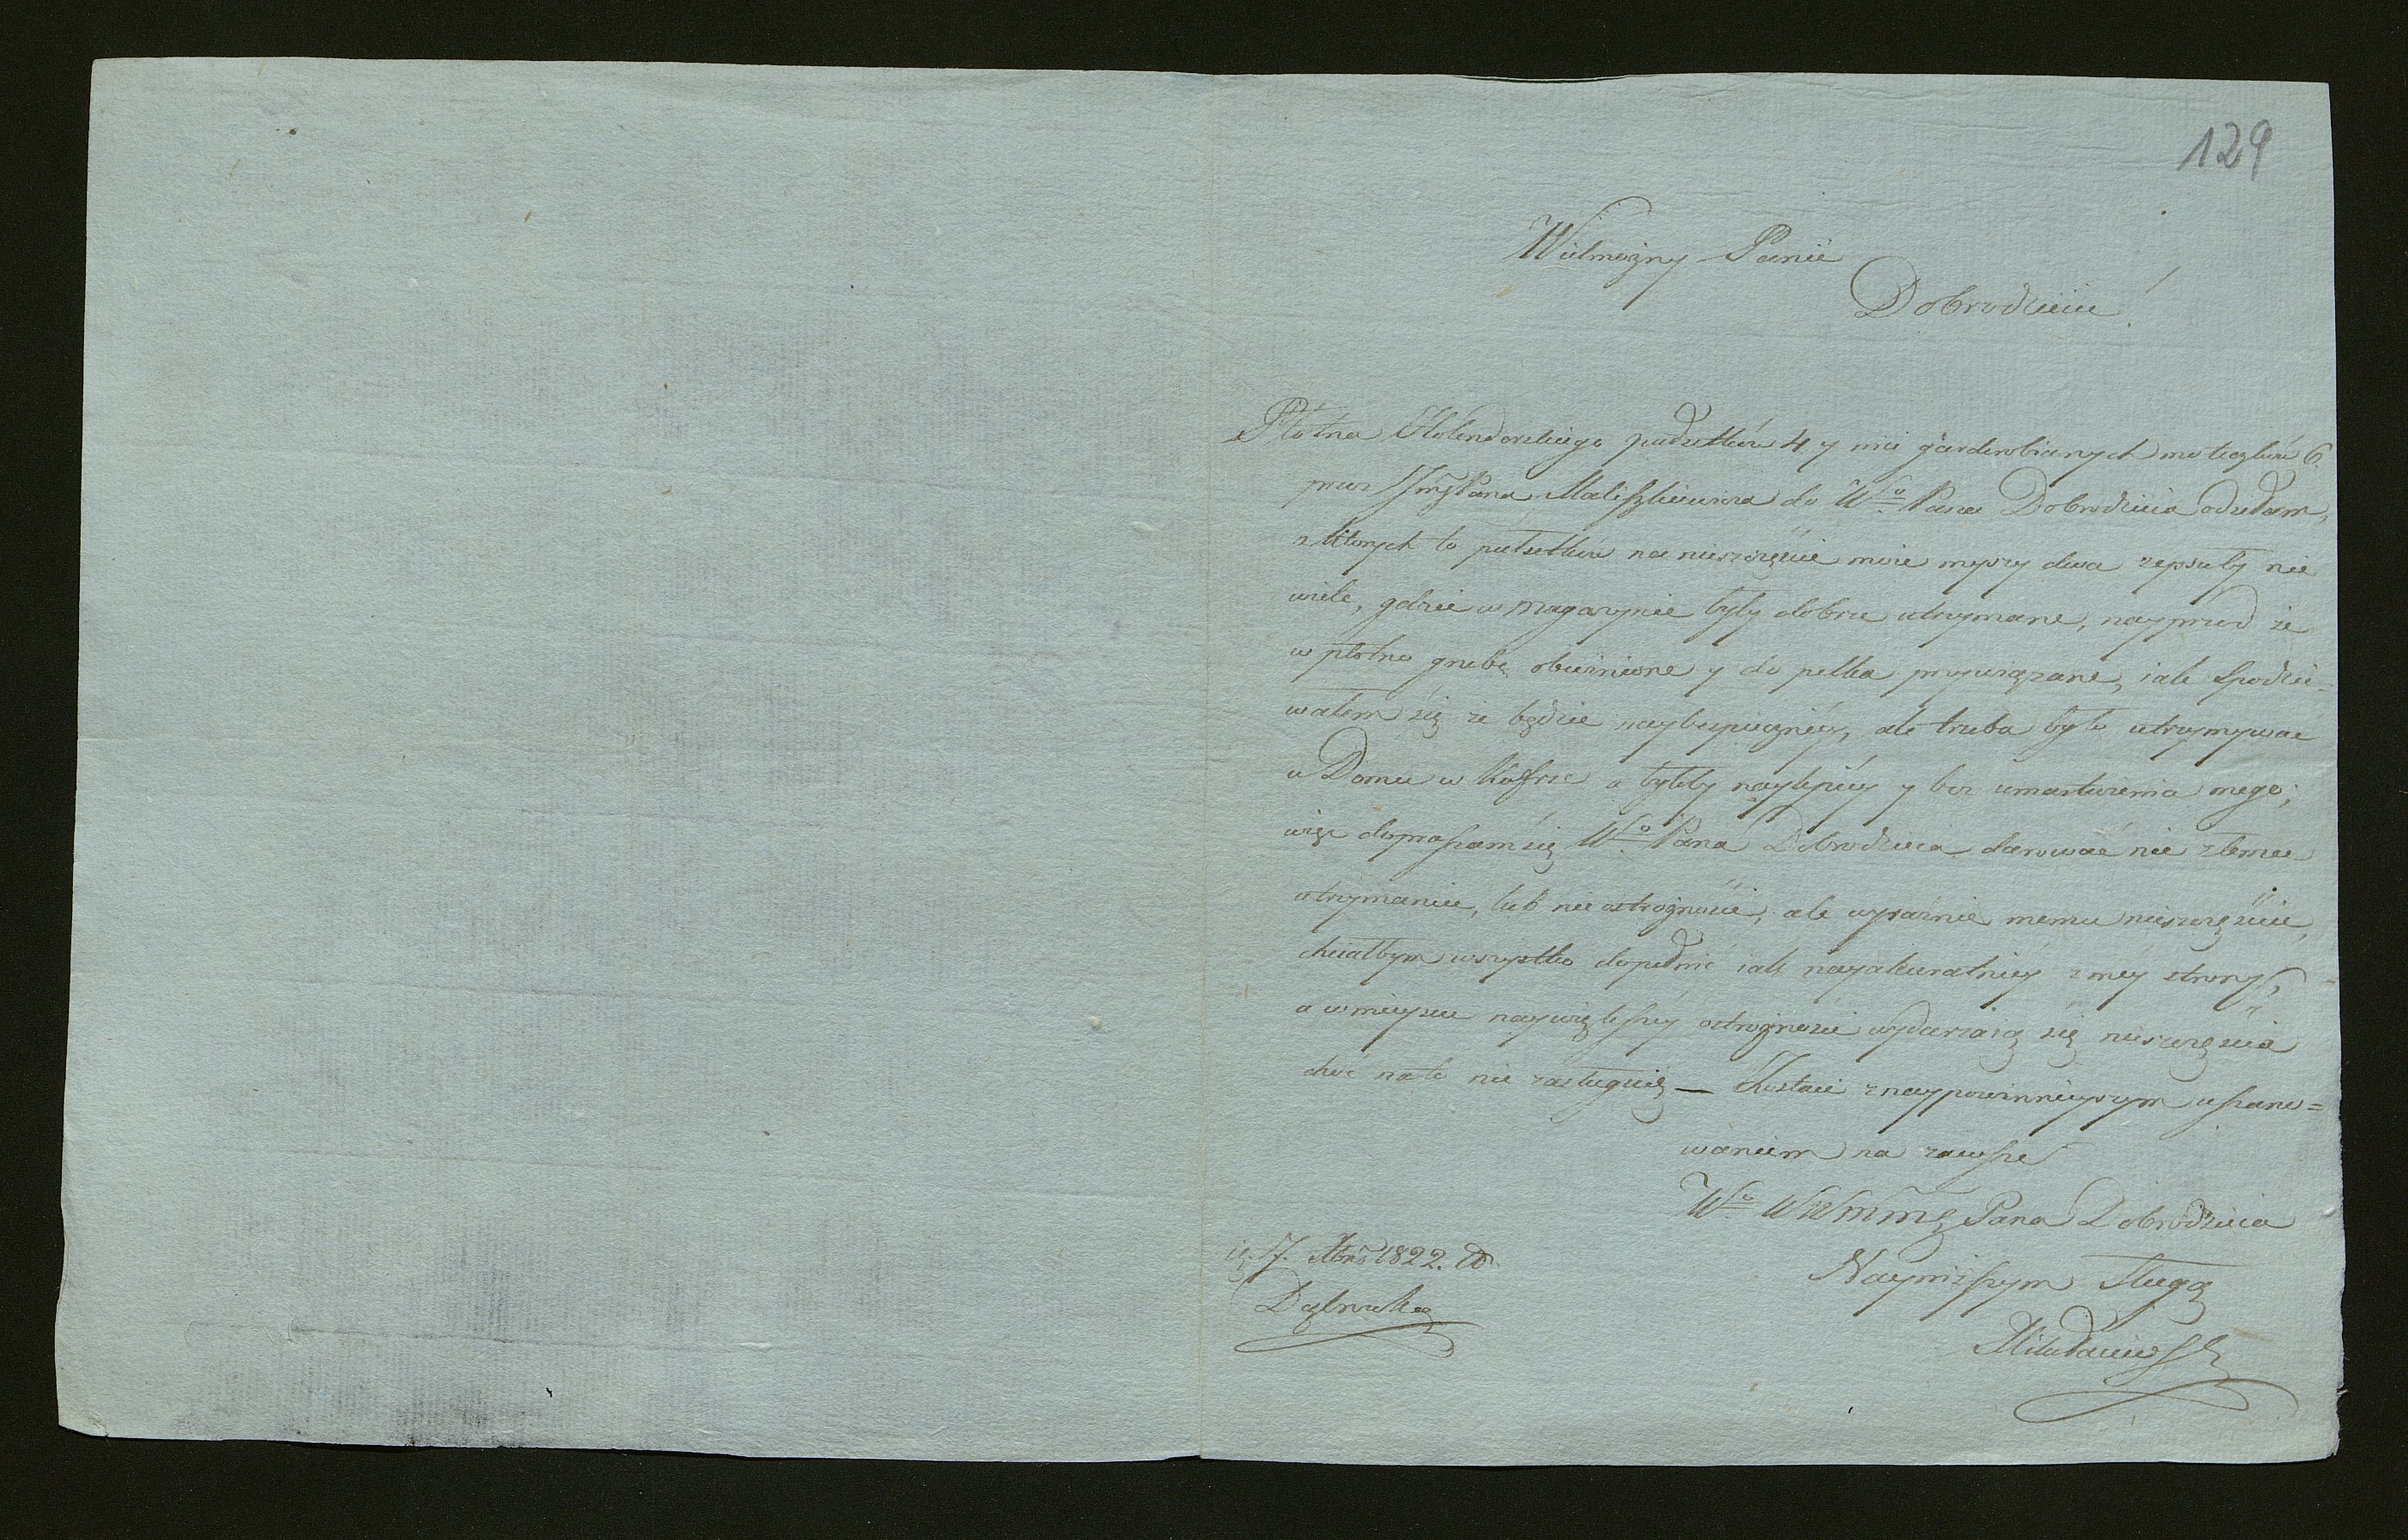 129
Wielmożny Panie
Dobrodzieiu!
Płótna Holenderskiego pułsetków 4 y nici garderobianych moteczków 6.
przez JmśPana Maliszkiewicza do Wgo Pana Dobrodzieia odsełam,
z ktorych to pułsetków na nieszczęście moie myszy dwa zepsuły nie
wiele, gdzie w magazynie były dobrze utrzymane, nayprzód że
w płótno grube obwinione y do pełka przywiązane, iak spodzie-
wałem się że będzie naybezpieczniey, ale trzeba było utrzymywac
u Domu w Kufrze a byłoby naylepiey y bez umartwienia mego;
więc dopraszam się Wgo Pana Dobrodzieia darować nie złemu
utrzymaniu, lub nie ostrożności, ale wyraźnie memu nieszczęściu,
chciałbym wszystko dopełnić iak nayakuratniey z mey strony,
a w mieyscu naywiększey ostrożności wydarzaią się nieszczęścia
choć na to nie zasługuię — Zostaie z naypowinnieyszym uszano=
waniem na zawsze
Wgo WWmmę Pana Dobrodzieia
Nayniższym Sługą
1822.
Dąbrowka